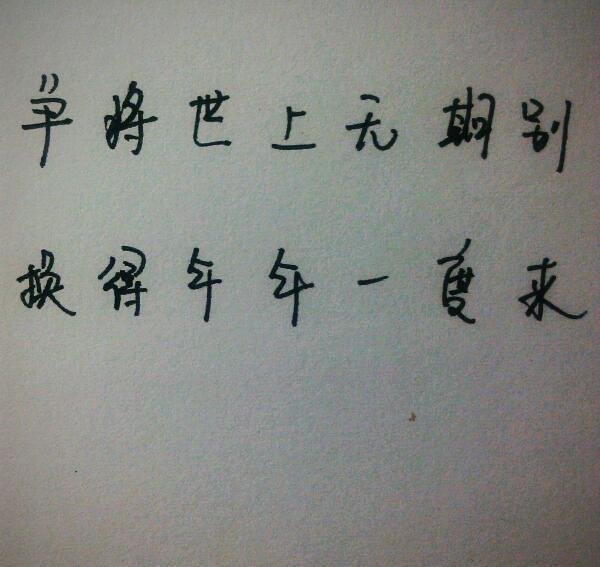 争将世上无期别
换得年年一度来